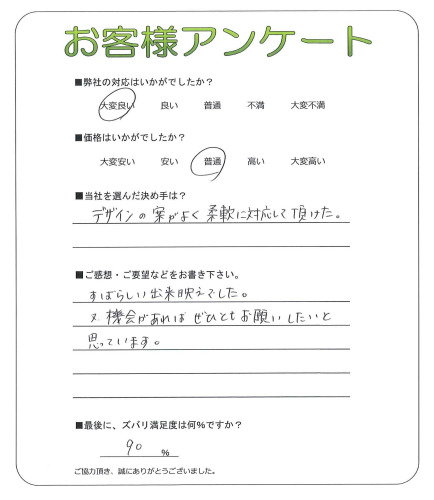 お客様アンケート
■弊社の対応はいかがでしたか?
大変良い 良い 普通 不満 大変不満
■価格はいかがでしたか?
大変安い 安い 普通 高い 大変高い
■当社を選んだ決め手は?
デザインの案がよく柔軟に対応して頂けた。
■ご感想・ご要望などをお書き下さい。
すばらしい出来映えでした。
又機会があればぜひともお願いしたいと
思っています。
■最後に、ズバリ満足度は何%ですか?
90 %
ご協力頂き、誠にありがとうございました。